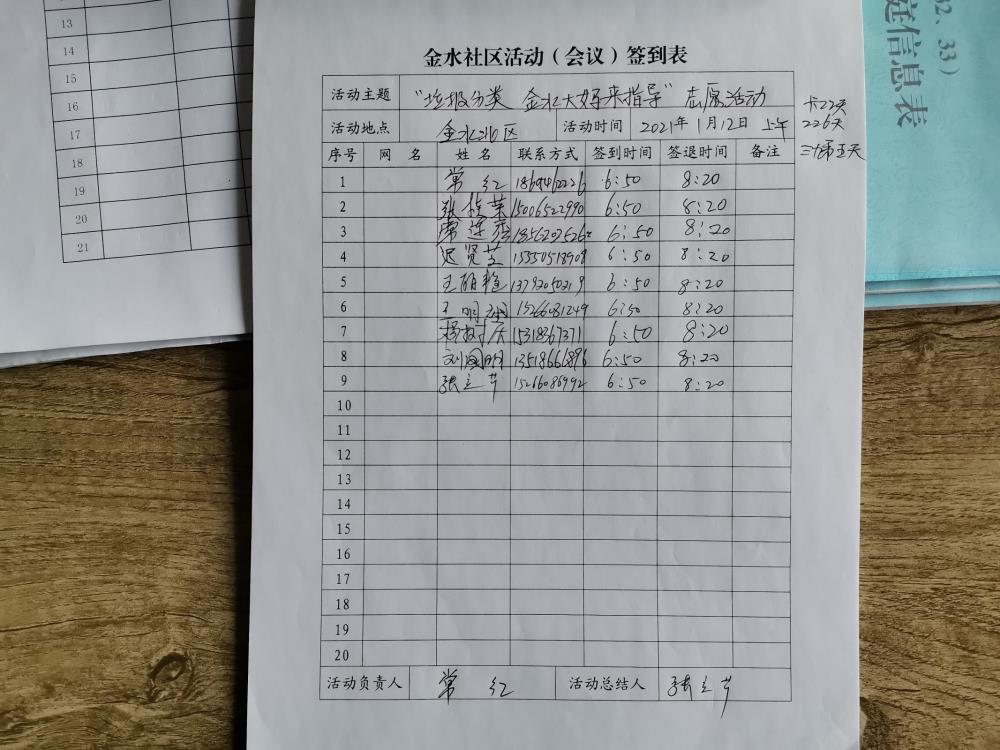 13
14
15
16
17
18
19
20
21
02、33）
庭信息表
金水社区活动（会议）签到表
活动主题 "垃圾分类 金水大嫂来指导" 志愿活动
活动地点 金水社区 活动时间 2021年1月12日 上午
卡22天
226天
序号 网 名 姓 名 联系方式 签到时间 签退时间 备注
1 常红 6:50 8:20
2 张桂荣 15006522990 6:50 8:20
3 6:50 8:20
4 迟贤芝 15550518908 6:50 8:20
5 王丽艳 13792050219 6:50 8:20
6 王明 15266081249 6:50 8:20
7 杨树庆 15318367371 6:50 8:20
8 刘国明 13518666896 6:50 8:20
9 张立芹 15266086992 6:50 8:20
10
11
12
13
14
15
16
17
18
19
20
活动负责人 常红 活动总结人 张立芹